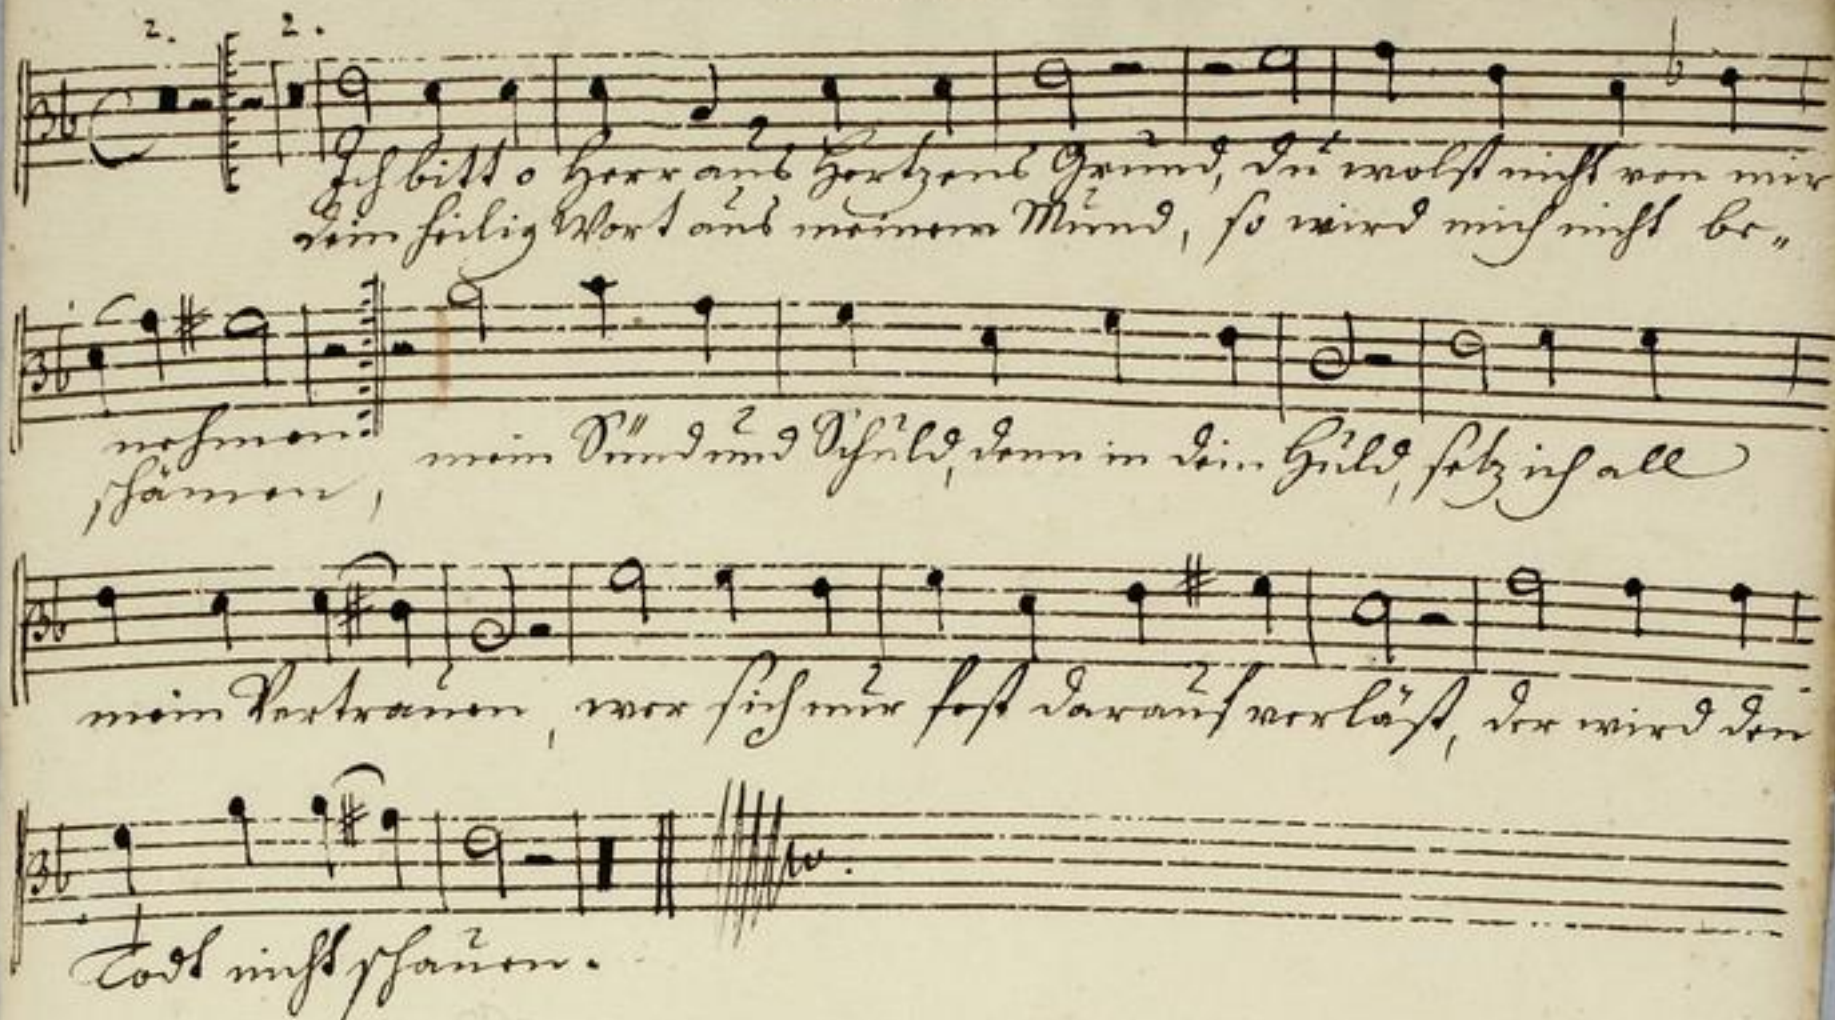 2. 2.
Ich bitt o Herr aus Hertzens Grund, du wolst nicht von mir
dein heilig Wort aus meinem Mund, so wird mich nicht be-
nehmen.
mein Sünd und Schuld, denn in dein Huld, setz ich all
schämen,
mein Vertrauen, wer sich nur fest darauf verläst, der wird den
Todt nicht schauen.